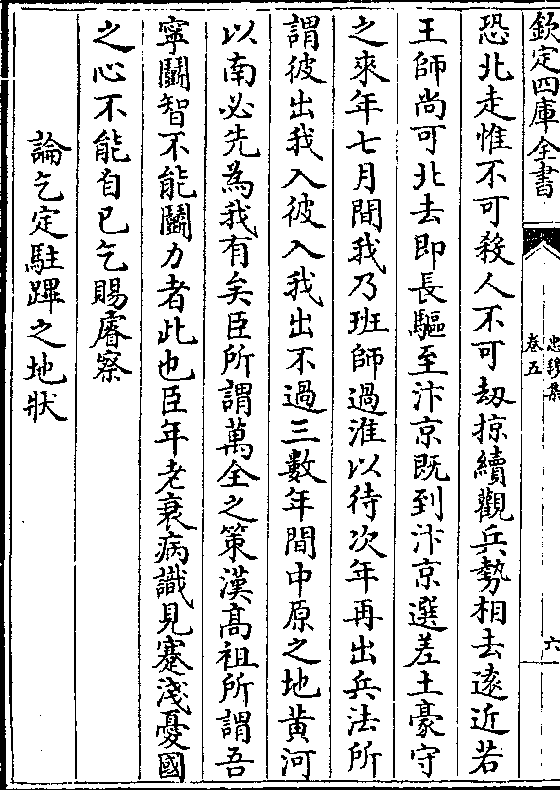 欽定四庫全書
忠穆集
卷五
六
恐北走惟不可殺人不可刼掠續觀兵勢相去遠近若
王師尚可北去即長驅至汴京既到汴京選差土豪守
之來年七月間我乃班師過淮以待次年再出兵法所
謂彼出我入彼入我出不過三數年間中原之地黄河
以南必先為我有矣臣所謂萬全之策漢髙祖所謂吾
寧鬭智不能鬭力者此也臣年老衰病識見蹇淺憂國
之心不能自已乞賜睿察
論乞定駐蹕之地狀